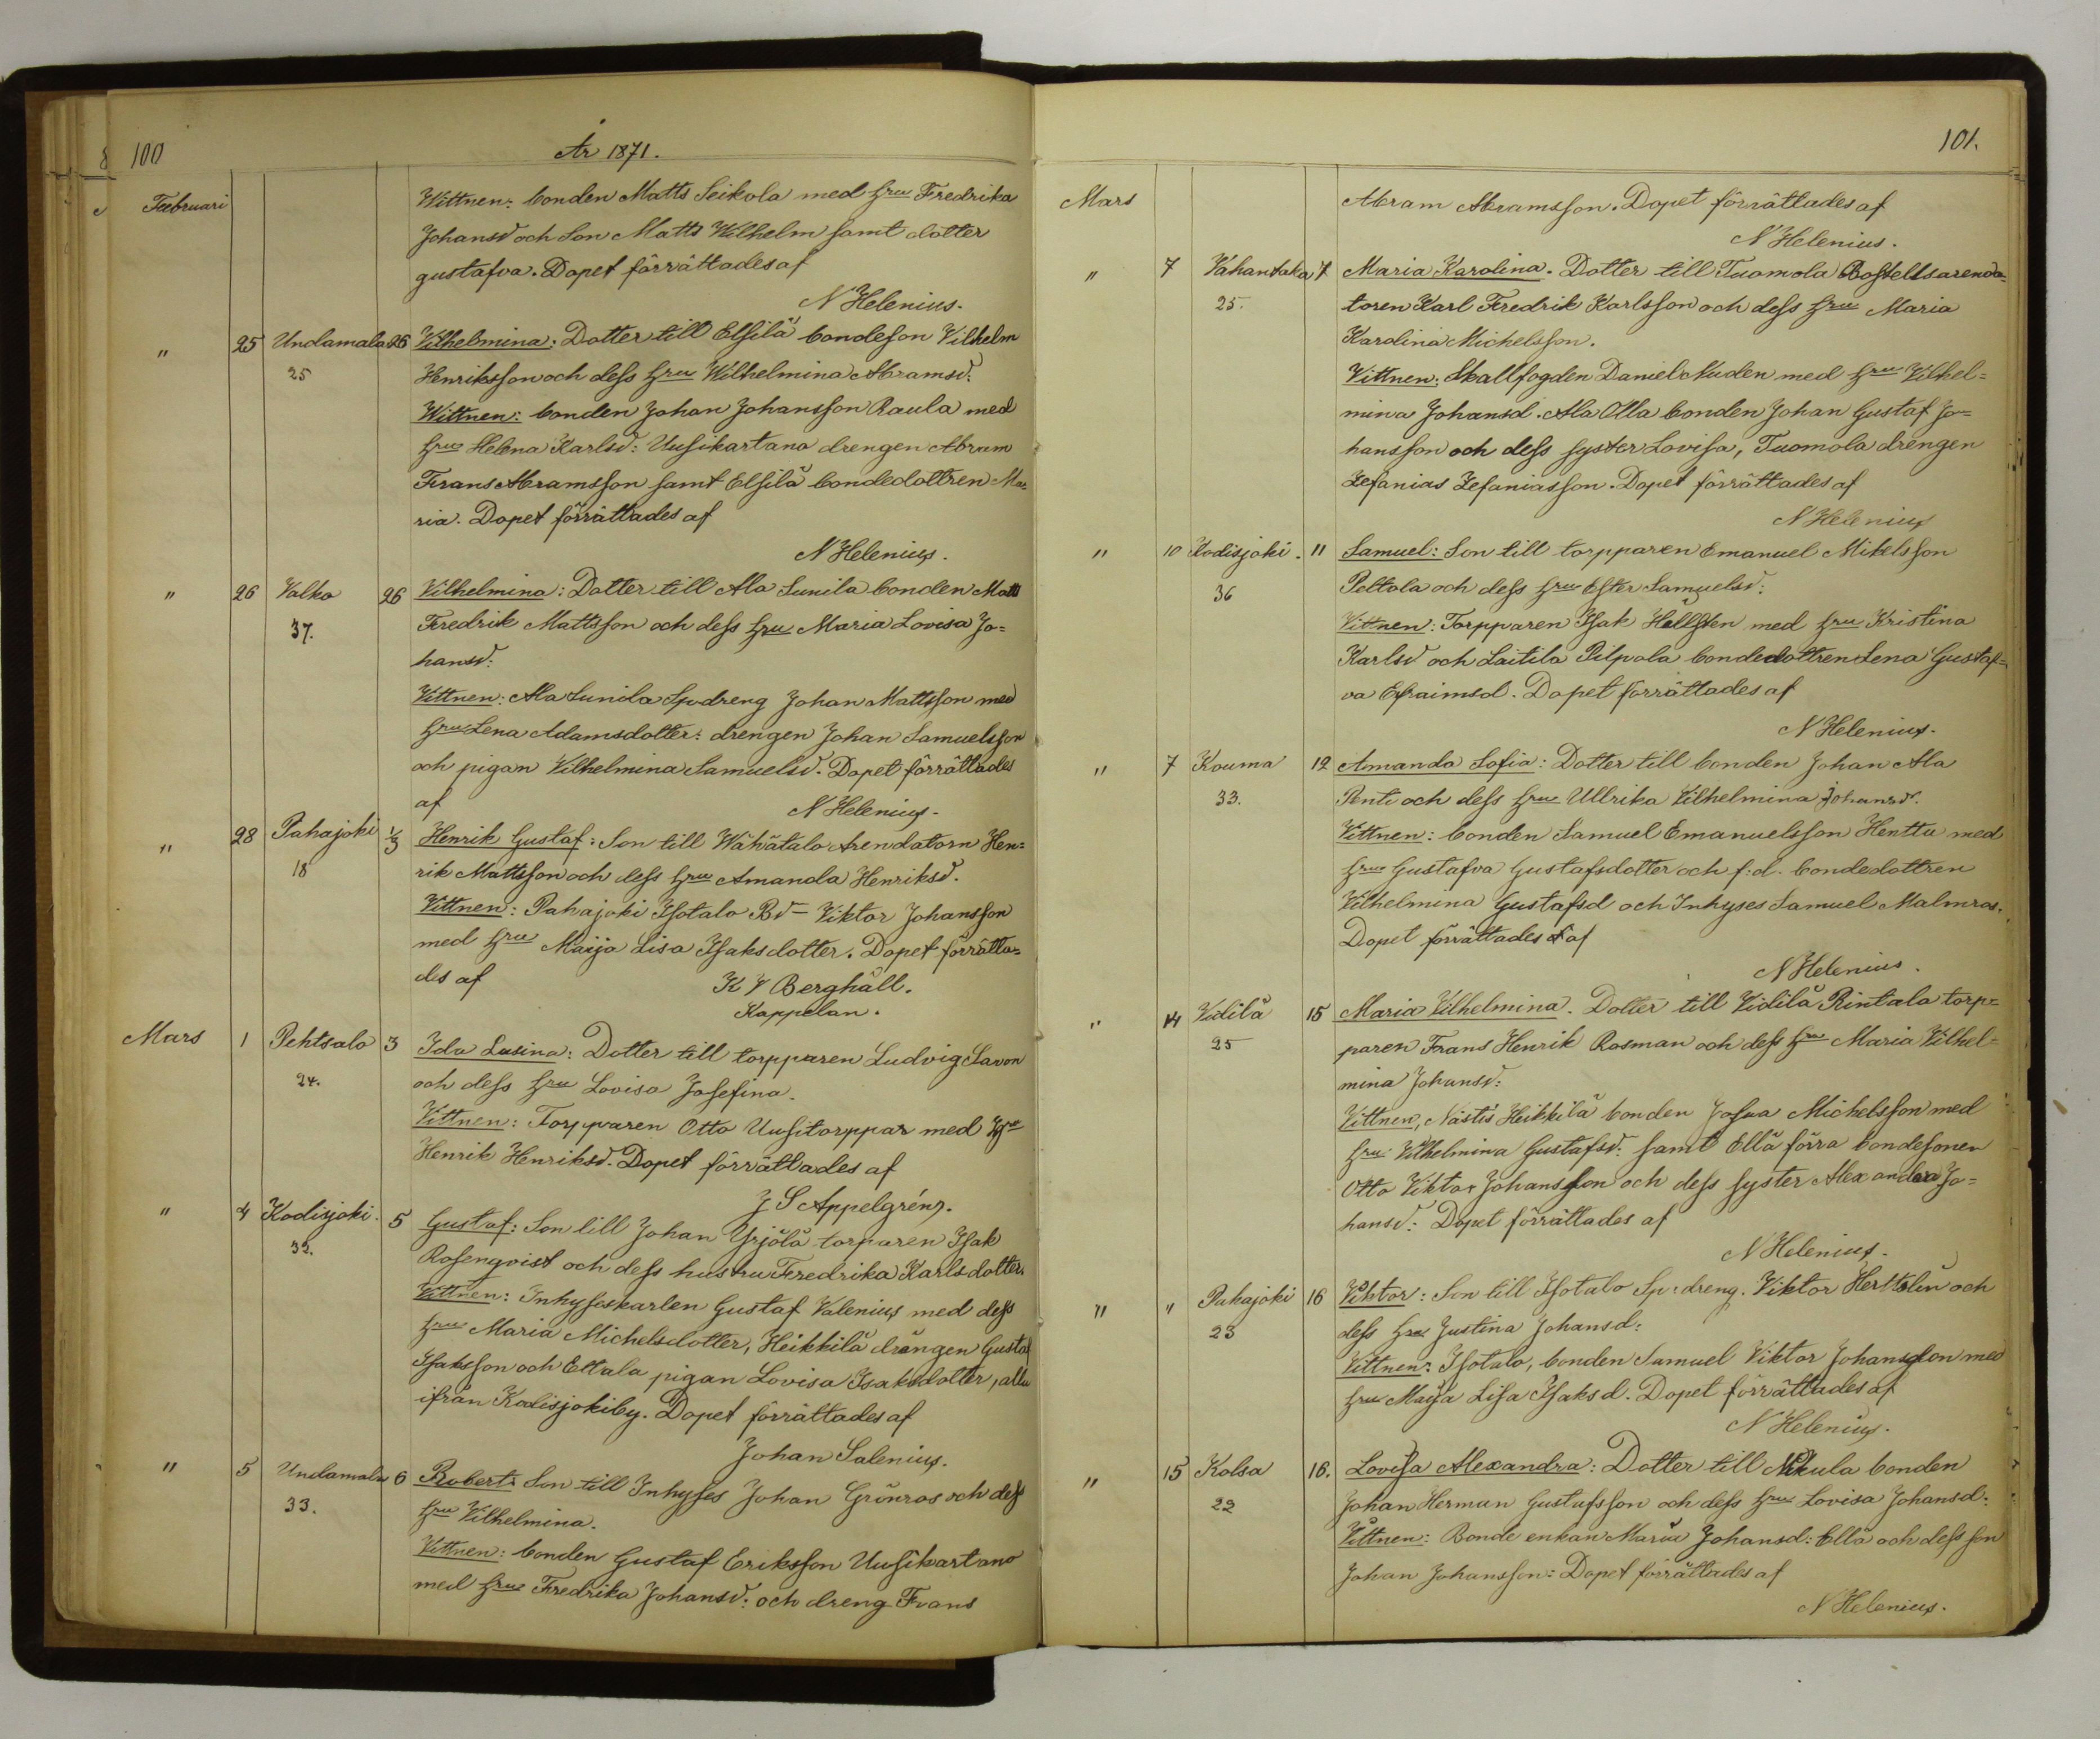 100
År 1871.
Februari
Wittnen: bonden Matts Seikola med Hru Fredrika
Johansd och Son Matts Wilhelm samt dotter
gustafva. Dopet förrättades af
N Helenius.
" 25 Undamala 26 Vilhelmina: Dotter till Elsilä bondeson Vilhelm
25 Henriksson och dess Hru Wilhelmina Abramsd:
Wittnen: bonden Johan Johansson Raula med
Hru Helena Karlsd: Uusikartano drengen Abram
Frans Abramsson samt Elsilä bondedottren Ma-
ria. Dopet förrättades af
N Helenius.
" 26 Valko 26 Vilhelmina: Dotter till Ala Sunila bonden Matt
37. Fredrik Mattsson och dess Hru Maria Lovisa Jo=
hansd:
Vittnen: Ala Sunila Spdreng Johan Mattsson med
Hru Lena Adamsdotter: drengen Johan Samuelsson
och pigan Vilhelmina Samuelsd. Dopet förrättades
af
N Helenius.
" 28 Pahajoki 1/3 Henrik Gustaf: Son till Wähätalo Arendatorn Hen=
18 rik Mattsson och dess Hru Amanda Henriksd.
Vittnen: Pahajoki Isotalo Bd- Viktor Johansson
med Hru Maija Lisa Isaksdotter. Dopet förrätta=
des af
K V Berghäll.
Kappelan.
Mars 1 Pehtsalo 3 Ida Lusina: Dotter till torpparen Ludvig Savon
24. och dess Hru Lovisa Josefina.
Vittnen: Torpparen Otto Uusitorppar med
Henrik Henriksd. Dopet förrättades af
J S Appelgrén.
" 4 Kodisjoki. 5 Gustaf: Son till Johan Yrjölä torparen Isak
33. Rosenqvist och dess hustru Fredrika Karlsdotter.
Vittnen: Inhyseskarlen Gustaf Valenius med dess
Hru Maria Michelsdotter, Heikkilä drängen Gustaf
Isaksson och Ettala pigan Lovisa Isaksdotter, alla
ifrån Kodisjokiby. Dopet förrättades af
Johan Salenius.
" 5 Undamala 6 Robert: Son till Inhyses Johan Grönros och dess
33. Hru Vilhelmina.
Vittnen: bonden Gustaf Eriksson Uusikartano
med Hru Fredrika Johansd: och dreng Frans
101.
Mars
Abram Abramsson. Dopet förrättades af
N Helenius.
" 7 Vahantaka 7 Maria Karolina. Dotter till Tuomola Bostellsarenda=
25. toren Karl Fredrik Karlsson och dess Hru Maria
Karolina Michelsson.
Vittnen: Skallfogden Daniel Nuden med Hru Vilhel=
mina Johansd. Ala Olla bonden Johan Gustaf Jo=
hansson och dess syster Lovisa, Tuomola drengen
Zefanias Zefaniasson. Dopet förrättades af
N Helenius
" 10 Kodisjoki. 11 Samuel: Son till torpparen Emanuel Mikelsson
36 Peltola och dess Hru Ester Samuelsd:
Vittnen: Torpparen Isak Hellsten med Hru Kristina
Karlsd och Laitila Pilpola bondedottren Lena Gustaf=
va Efraimsd. Dopet förrättades af
N Helenius.
" 7 Kouma 12 Amanda Sofia: Dotter till bonden Johan Ala
33. Penti och dess Hru Ullrika Vilhelmina Johansd.
Vittnen: bonden Samuel Emanuelsson Henttu med
Hru Gustafva Gustafsdotter och f:d. bondedottren
Vilhelmina Gustafsd och Inhyses Samuel Malmros.
Dopet förrättades af
N Helenius.
" 14 Vidilä 15 Maria Vilhelmina. Dotter till Vidilä Rintala torp=
25 paren Frans Henrik Rosman och dess Hru Maria Vilhel=
mina Johansd:
Vittnen, Nästis Heikkilä bonden Josua Michelsson med
Hru Vilhelmina Gustafsd: samt Ellä förra bondesonen
Otto Viktor Johansson och dess syster Alexandra Jo=
hansd: Dopet förrättades af
N Helenius.
" " Pahajoki 16 Viktor: Son till Isotalo Sp:dreng. Viktor Herttelin och
23 dess Hru Justina Johansd:
Vittnen: Isotalo, bonden Samuel Viktor Johansson med
Hru Maija Lisa Isaksd. Dopet förrättades af
N Helenius.
" 15 Kolsa 16. Lovisa Alexandra: Dotter till Nikula bonden
22 Johan Herman Gustafsson och dess Hru Lovisa Johansd:
Vittnen: Bonde enkan Maria Johansd: Ellä och dess son
Johan Johansson: Dopet förrättades af
N Helenius.